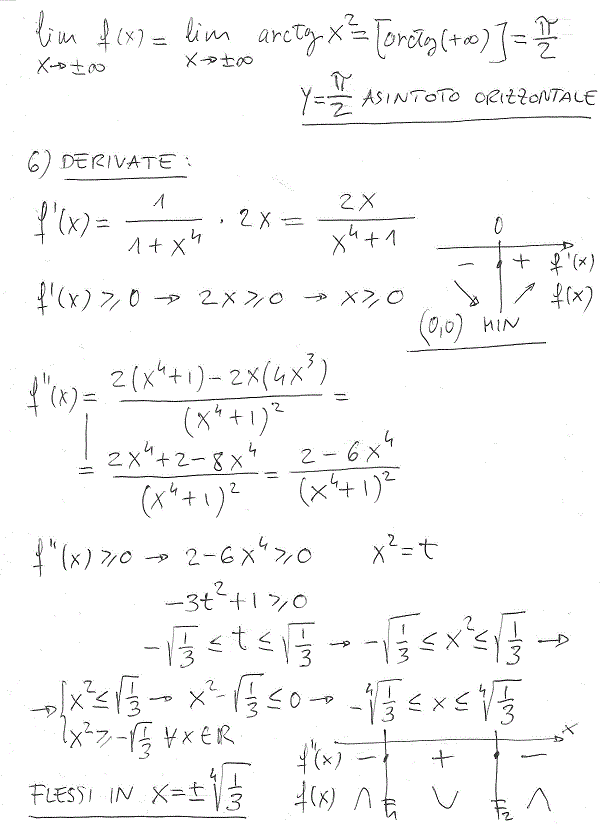 lim f(x) = lim arctg x² = [arctg(+∞)] = π/2
x→±∞ x→±∞
y = π/2 ASINTOTO ORIZZONTALE
6) DERIVATE:
f'(x) = 1/(1+x⁴) · 2x = 2x/(x⁴+1)
0
− + f'(x)
f'(x) ≥ 0 → 2x ≥ 0 → x ≥ 0
↘ ↗ f(x)
(0,0) MIN
f''(x) = (2(x⁴+1) − 2x(4x³))/(x⁴+1)² =
= (2x⁴+2−8x⁴)/(x⁴+1)² = (2−6x⁴)/(x⁴+1)²
f''(x) ≥ 0 → 2−6x⁴ ≥ 0 x² = t
−3t²+1 ≥ 0
−√(1/3) ≤ t ≤ √(1/3) → −√(1/3) ≤ x² ≤ √(1/3) →
→ { x² ≤ √(1/3) → x² − √(1/3) ≤ 0 → −⁴√(1/3) ≤ x ≤ ⁴√(1/3)
x² ≥ −√(1/3) ∀x∈R
x
f''(x) − + −
FLESSI IN x = ±⁴√(1/3)
f(x) ∩ F₁ ∪ F₂ ∩